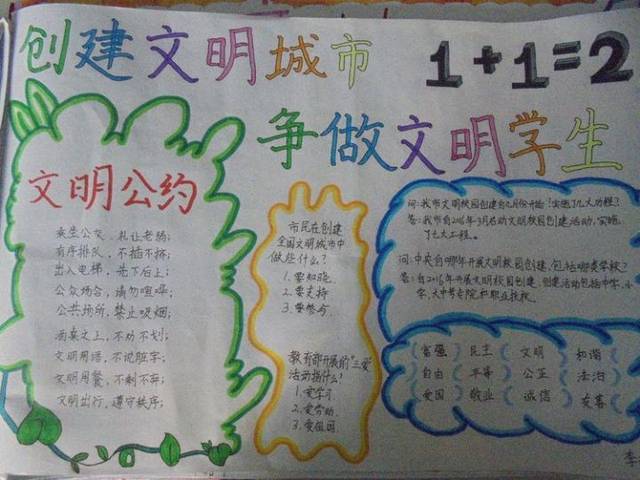 创建文明城市
1+1=2
争做文明学生
文明公约
乘坐公交，礼让老肠；
有序排队，不插不挤；
出入电梯，先下后上；
公众场合，请勿喧哗；
公共场所，禁止吸烟；
酒桌之上，不劝不划；
文明用语，不说脏字；
文明用餐，不剩不弃；
文明出行，遵守秩序；
市民在创建
全国文明城市中
做些什么？
1.要知晓
2.要支持
3.要参与
教育部开展的“三爱”
活动指什么？
1.爱学习
2.爱劳动
3.爱祖国
问：我市文明校园创建自几月份开始？实施了几大工程？
答：我市自2016年3月启动文明校园创建活动，实施
了七大工程。
问：中央自哪年开展文明校园创建，包括哪类学校？
答：自2015年开展文明校园创建，创建活动包括中学、小
学、大中专院和职业技校。
富强 民主 文明 和谐
自由 平等 公正 法治
爱国 敬业 诚信 友善
李